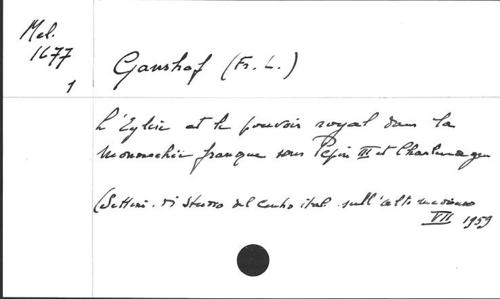 Mel.
1677
1
Ganshof (Fr. L.)
L'Eglise et le pouvoir royal dans la
monarchie franque sous Pépin III et Charlemagne
(Settim. di Studio del Centro ital. sull'alto medioevo
VII 1959